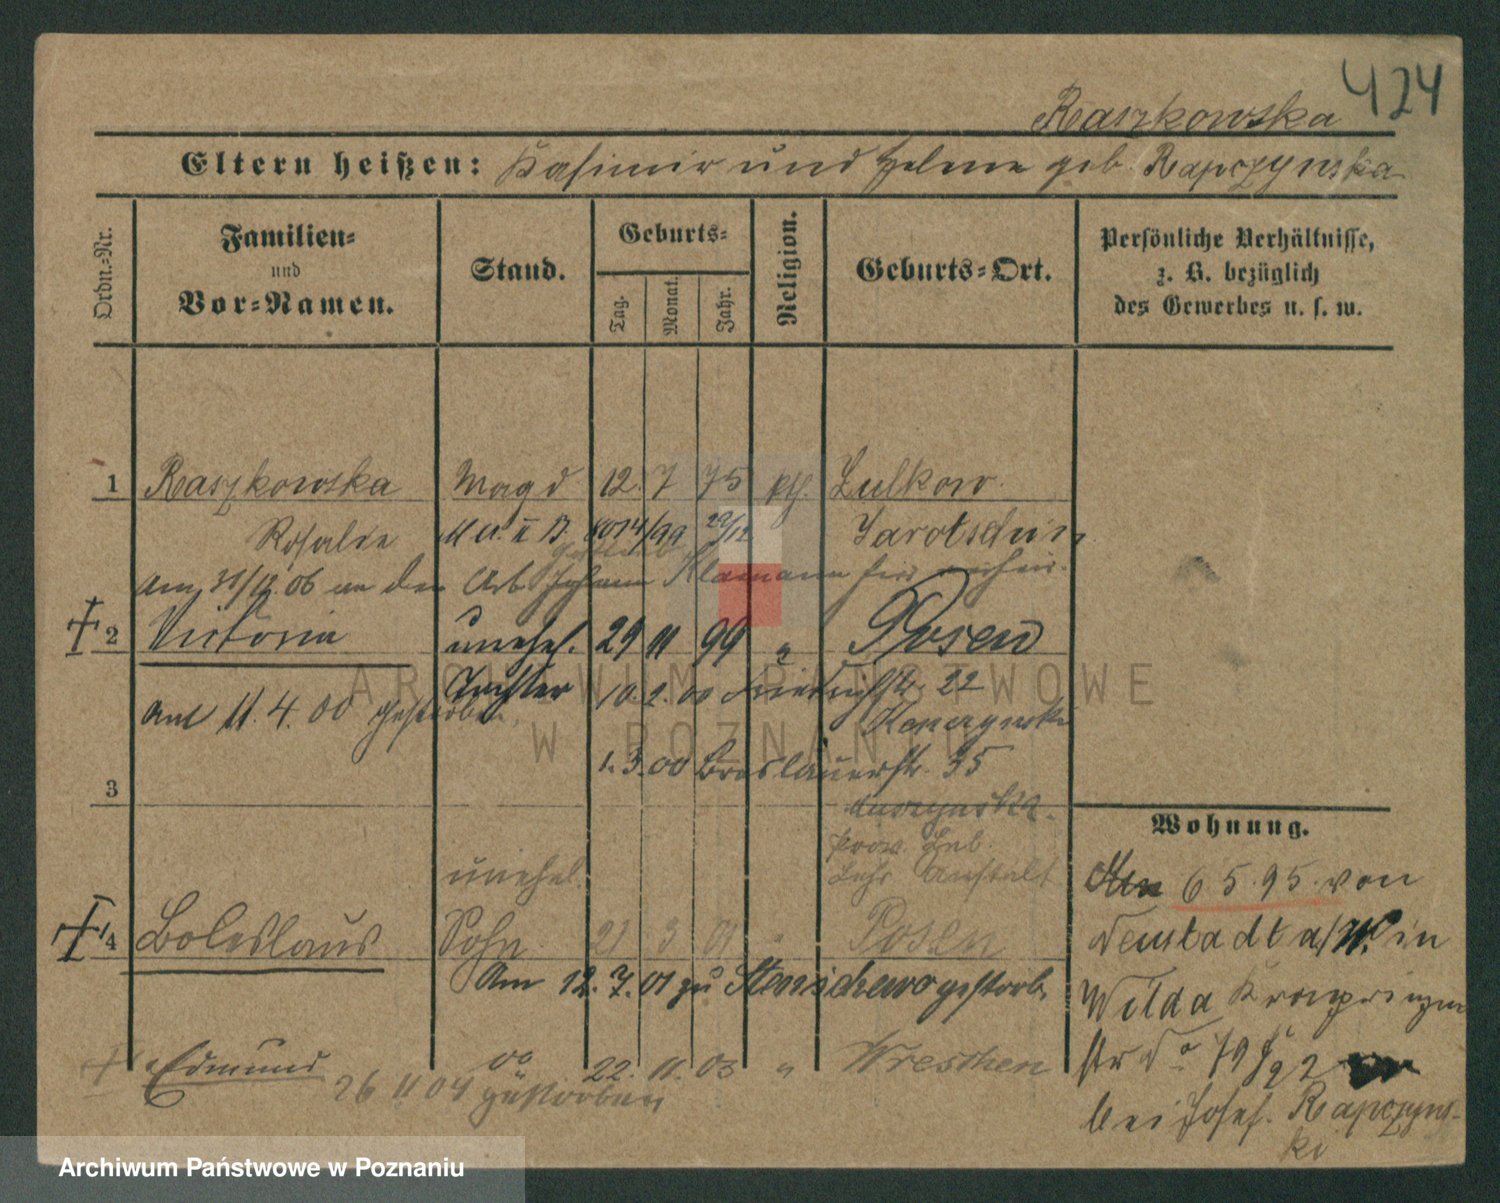 424
Raszkowska
Eltern heißen: Kasimir und Helene geb. Rapczynska
Ordn.-Nr.
Familien- und Vor-Namen.
Stand.
Geburts- Tag. Monat. Jahr.
Religion.
Geburts-Ort.
Persönliche Verhältnisse, z. B. bezüglich des Gewerbes u. s. w.
1 Raszkowska Magd 12. 7 75 kth. Lulkow
Rosalie 6014/99 29/12 Jarotschin
Am 31/12. 06 an den Arb. Johann Klamann
2 Victoria unehel. 29 11 99 " Posen
Tochter 10. 2. 00 Friedrichstr. 22
Am 11. 4. 00 gestorben
1. 3. 00 Breslauerstr. 35
3
Prov. Heb.
Lehr Anstalt
unehel.
4 Boleslaus Sohn 21 3 01 " Posen
Am 12. 7. 01 zu Stenschewo gestorb.
Edmund do 22. 11. 03 " Wreschen
26 11 04 gestorben
Wohnung.
6 5. 95. von
Neustadt a/W. in
Wilda Kronprinzen
str No 79
bei Josef. Rapczyns-
ki
ARCHIWUM PAŃSTWOWE
W POZNANIU
Archiwum Państwowe w Poznaniu